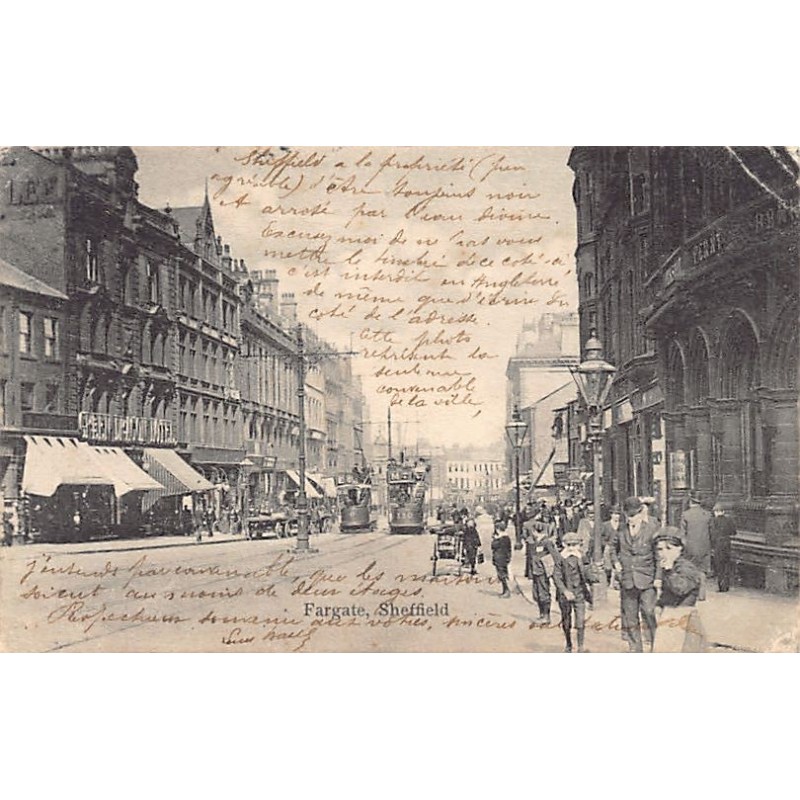 Sheffield a la propriété (peu
agréable) d'être toujours noir
et arrosé par l'eau divine.
Excusez moi de ne pas vous
mettre le timbre de ce coté-ci
c'est interdit en Angleterre
de même que d'écrire du
coté de l'adresse.
Cette photo
représente la
seule rue
convenable
de la ville,
j'entends par convenable que les maisons
soient au moins de deux étages.
Fargate, Sheffield
Respectueux souvenir aux vôtres, sincères salutations